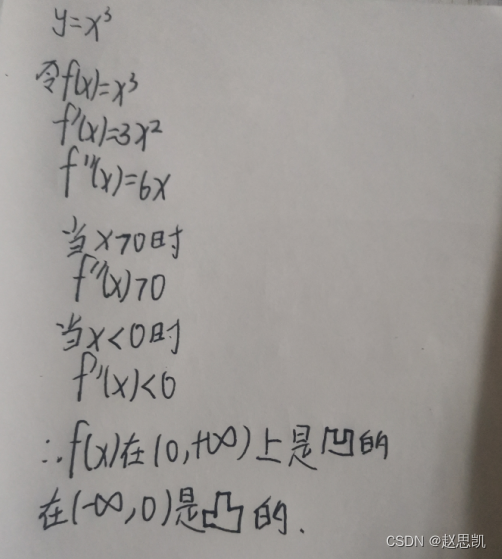 y=x³
令f(x)=x³
f'(x)=3x²
f''(x)=6x
当x>0时
f''(x)>0
当x<0时
f''(x)<0
∴f(x)在(0,+∞)上是凹的
在(-∞,0)是凸的.
CSDN @赵思凯